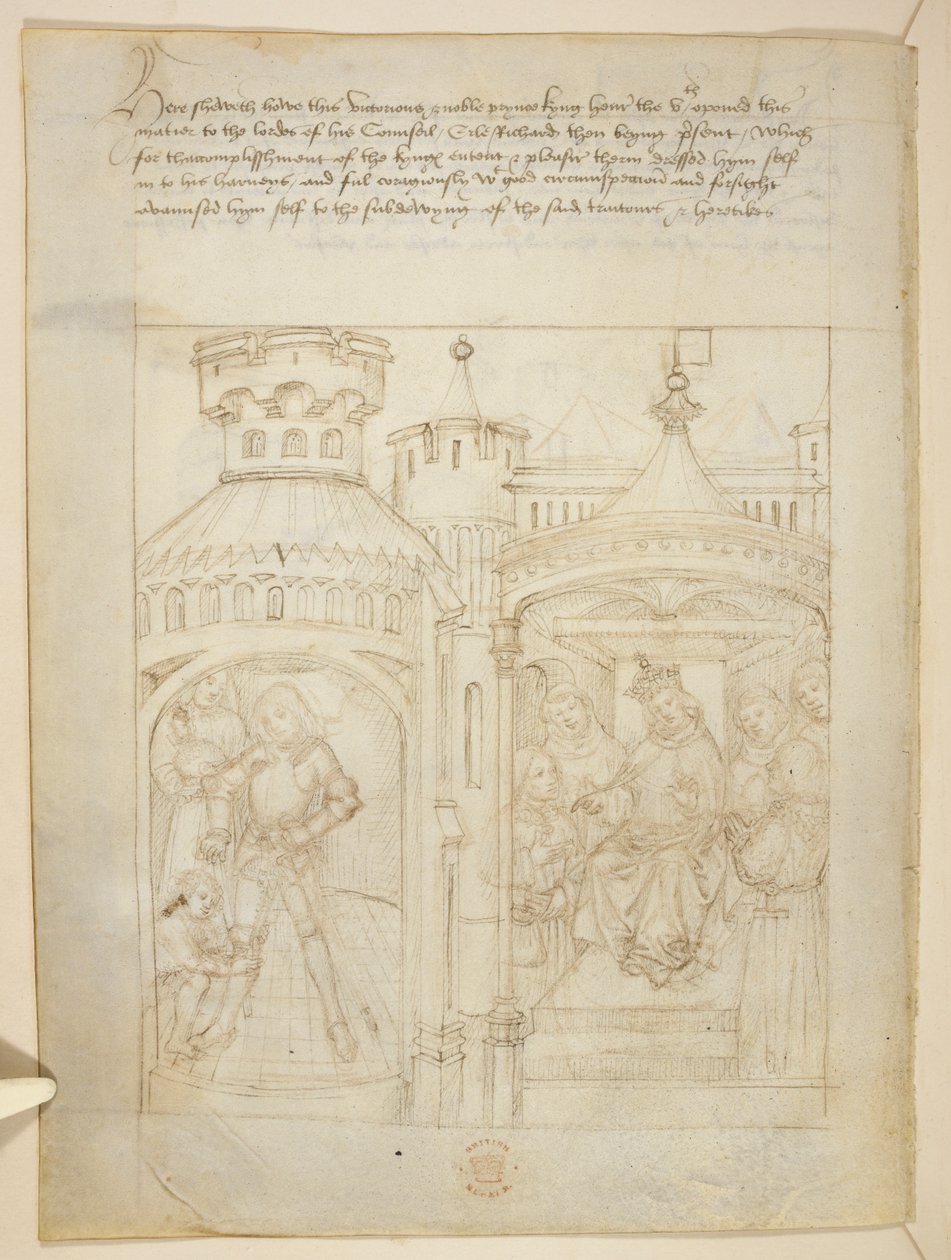 Here sheweth howe this victorious & noble prynce kyng Henr' the vth opened this
matier to the lordes of his Counseil / Erle Richard then beyng p'sent / Which
for thaccomplisshment of the kynges entent & pleasir therin dressed hym self
in to his harneys / and ful coragiously wt good circumspeccion and forsight
avaunsed hym self to the subdewyng of the said traitours & heretikes
BRITISH
MUSEUM